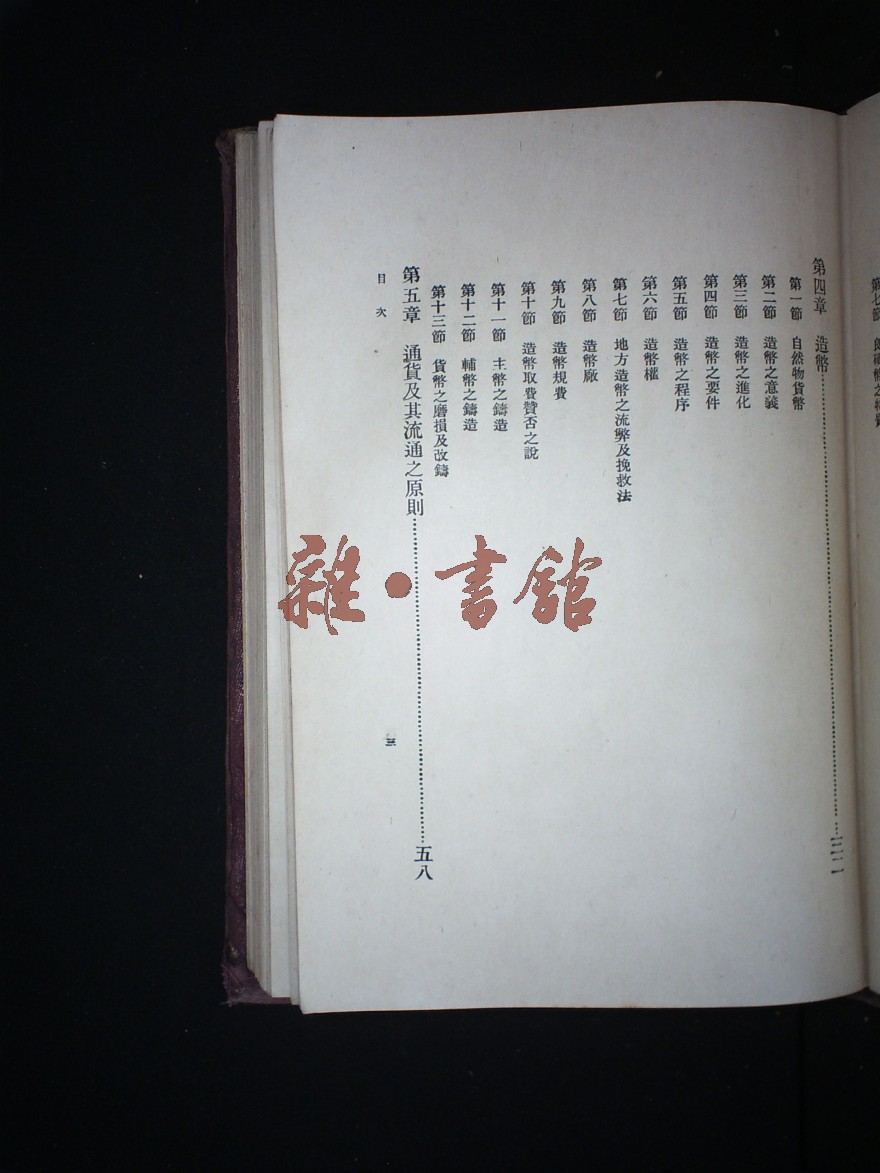 第四章　造幣……
第一節　自然物貨幣
第二節　造幣之意義
第三節　造幣之進化
第四節　造幣之要件
第五節　造幣之程序
第六節　造幣權
第七節　地方造幣之流弊及挽救法
第八節　造幣廠
第九節　造幣規費
第十節　造幣取費贊否之說
第十一節　主幣之鑄造
第十二節　輔幣之鑄造
第十三節　貨幣之磨損及改鑄
第五章　通貨及其流通之原則……五八
目次
三
雜·書館